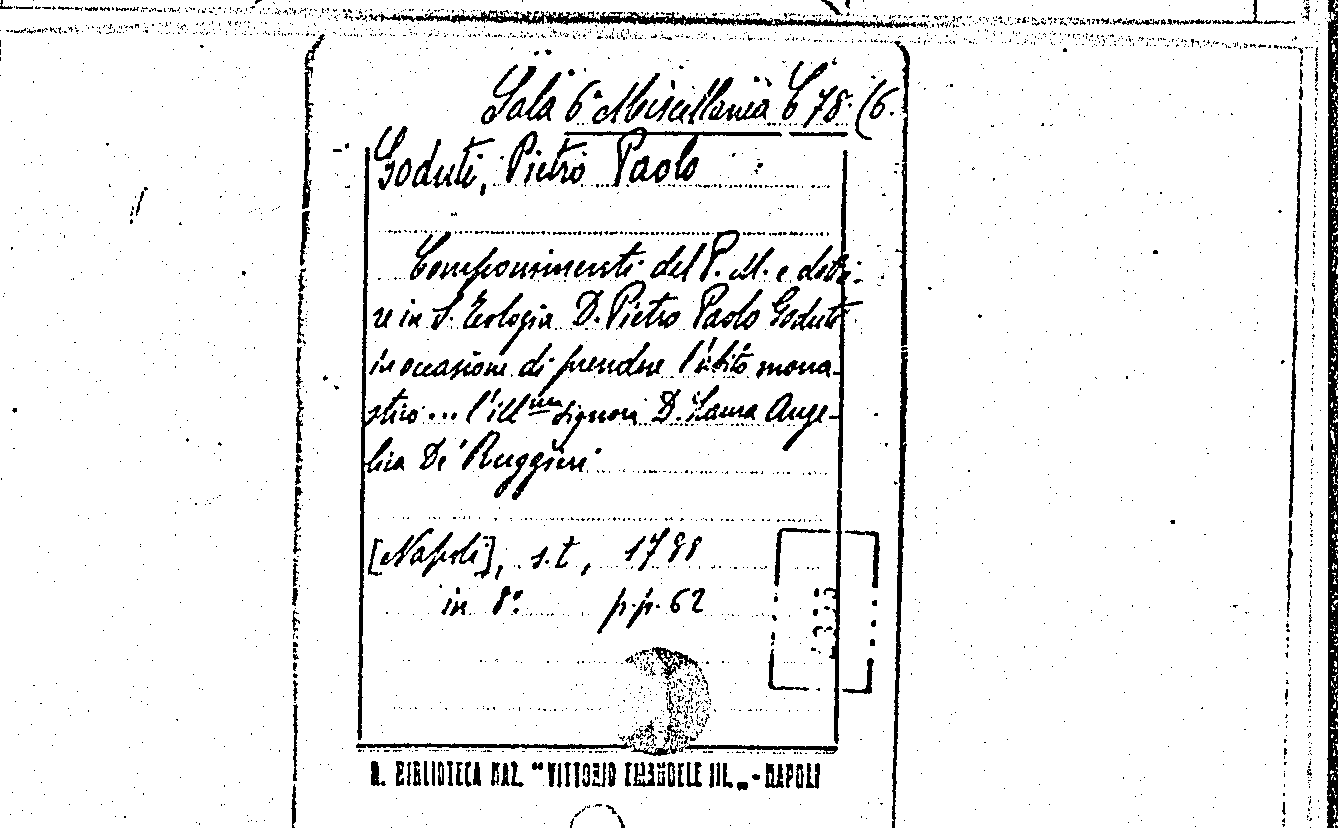 Sala 6ª Miscellanea C 78 (6.
Goduti, Pietro Paolo
Componimenti del P. M. e dotto-
re in S. Teologia D. Pietro Paolo Goduti
in occasione di prendere l'abito mona-
stico... l'illma signora D. Laura Ange-
lica De' Ruggieri
[Napoli], s.t, 1798
in 8° p.p. 62
R. BIBLIOTECA NAZ. "VITTORIO EMANUELE III" - NAPOLI